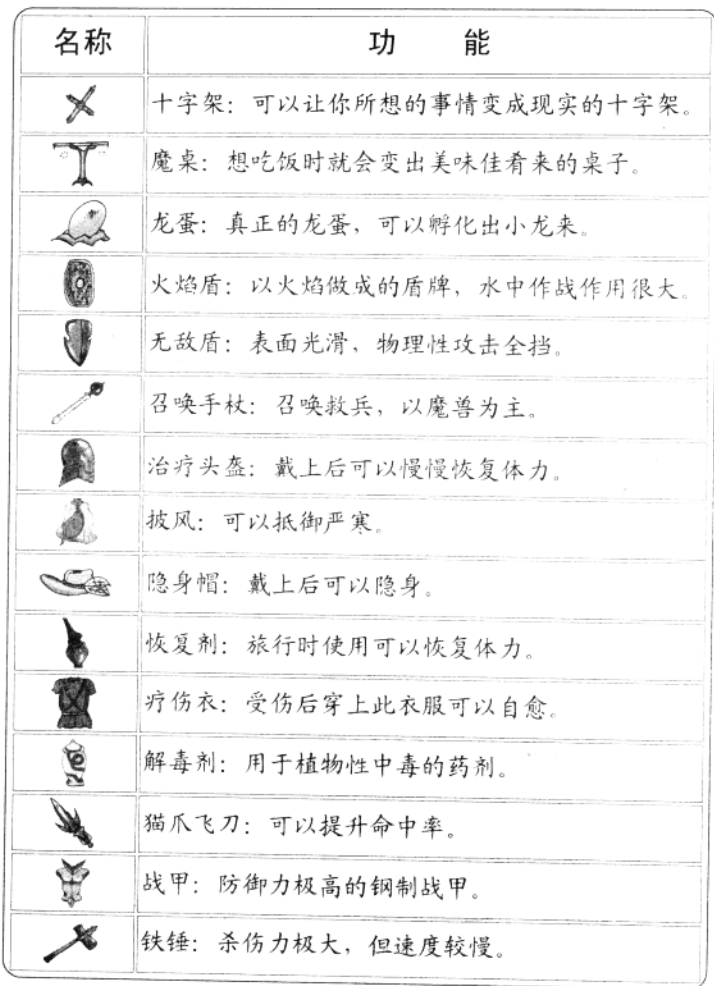 名称 功能
十字架：可以让你所想的事情变成现实的十字架。
魔桌：想吃饭时就会变出美味佳肴来的桌子。
龙蛋：真正的龙蛋，可以孵化出小龙来。
火焰盾：以火焰做成的盾牌，水中作战作用很大。
无敌盾：表面光滑，物理性攻击全挡。
召唤手杖：召唤救兵，以魔兽为主。
治疗头盔：戴上后可以慢慢恢复体力。
披风：可以抵御严寒。
隐身帽：戴上后可以隐身。
恢复剂：旅行时使用可以恢复体力。
疗伤衣：受伤后穿上此衣服可以自愈。
解毒剂：用于植物性中毒的药剂。
猫爪飞刀：可以提升命中率。
战甲：防御力极高的钢制战甲。
铁锤：杀伤力极大，但速度较慢。